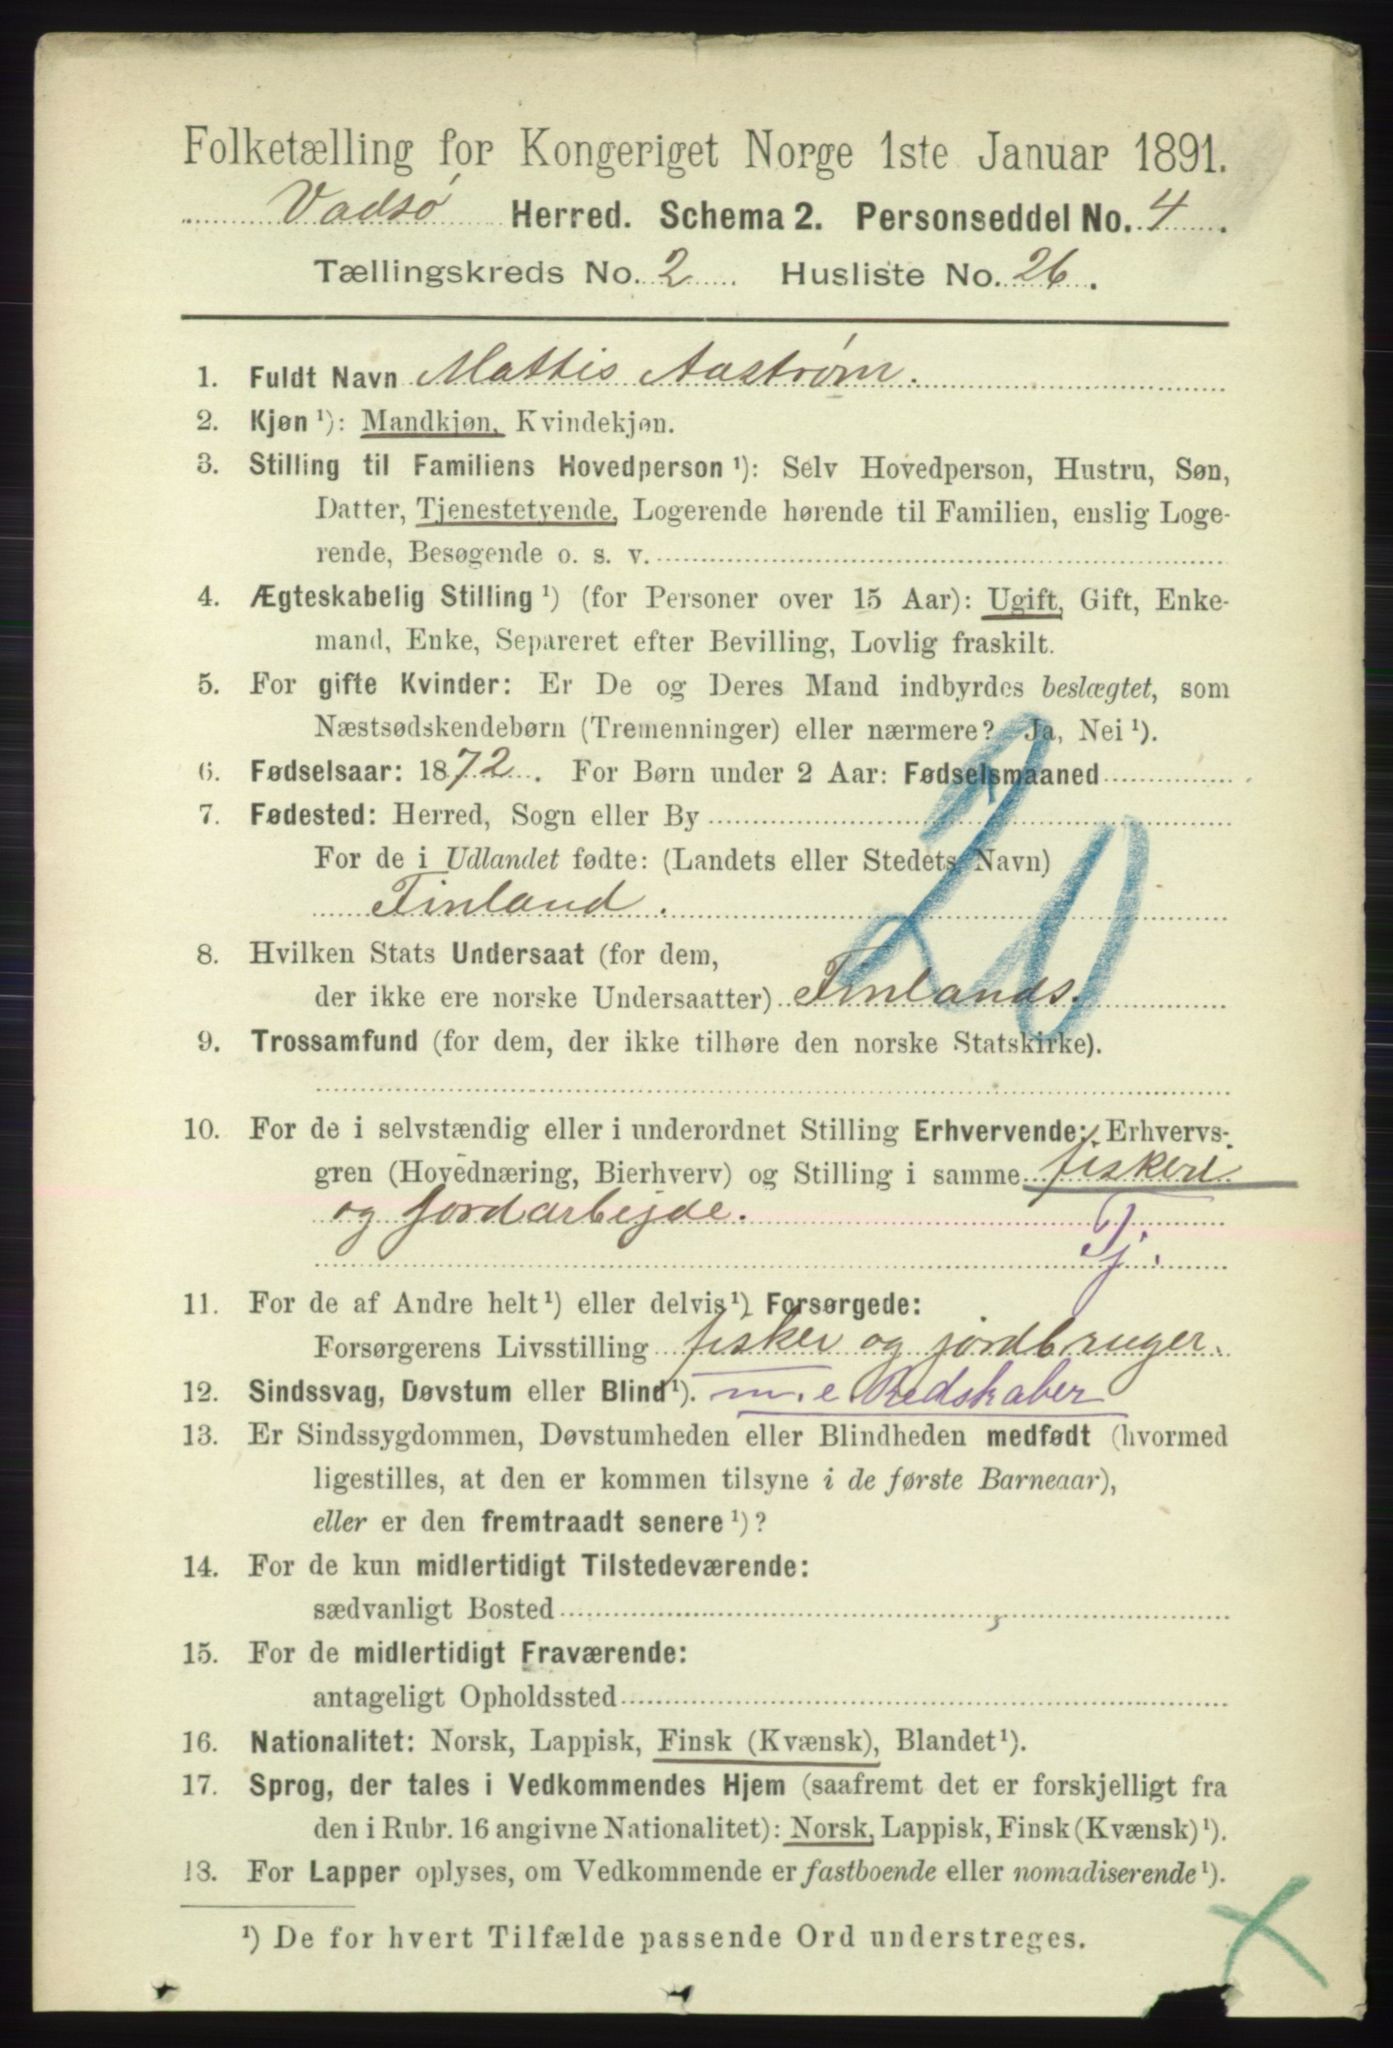 Folketælling for Kongeriget Norge 1ste Januar 1891.
Vadsø Herred. Schema 2. Personseddel No. 4.
Tællingskreds No. 2 Husliste No. 26.
1. Fuldt Navn Mattis Aastrøm.
2. Kjøn ¹): Mandkjøn, Kvindekjøn.
3. Stilling til Familiens Hovedperson ¹): Selv Hovedperson, Hustru, Søn,
Datter, Tjenestetyende, Logerende hørende til Familien, enslig Loge-
rende, Besøgende o. s. v.
4. Ægteskabelig Stilling ¹) (for Personer over 15 Aar): Ugift, Gift, Enke-
mand, Enke, Separeret efter Bevilling, Lovlig fraskilt.
5. For gifte Kvinder: Er De og Deres Mand indbyrdes beslægtet, som
Næstsødskendebørn (Tremenninger) eller nærmere? Ja, Nei ¹).
6. Fødselsaar: 1872. For Børn under 2 Aar: Fødselsmaaned
7. Fødested: Herred, Sogn eller By
For de i Udlandet fødte: (Landets eller Stedets Navn)
Finland.
20
8. Hvilken Stats Undersaat (for dem,
der ikke ere norske Undersaatter) Finlands.
9. Trossamfund (for dem, der ikke tilhøre den norske Statskirke).
10. For de i selvstændig eller i underordnet Stilling Erhvervende: Erhvervs-
gren (Hovednæring, Bierhverv) og Stilling i samme fiskeri
og jordarbejde.
Tj.
11. For de af Andre helt ¹) eller delvis ¹) Forsørgede:
Forsørgerens Livsstilling fisker og jordbruger.
12. Sindssvag, Døvstum eller Blind ¹). m. e Redskaber
13. Er Sindssygdommen, Døvstumheden eller Blindheden medfødt (hvormed
ligestilles, at den er kommen tilsyne i de første Barneaar),
eller er den fremtraadt senere ¹)?
14. For de kun midlertidigt Tilstedeværende:
sædvanligt Bosted
15. For de midlertidigt Fraværende:
antageligt Opholdssted
16. Nationalitet: Norsk, Lappisk, Finsk (Kvænsk), Blandet ¹).
17. Sprog, der tales i Vedkommendes Hjem (saafremt det er forskjelligt fra
den i Rubr. 16 angivne Nationalitet): Norsk, Lappisk, Finsk (Kvænsk) ¹).
18. For Lapper oplyses, om Vedkommende er fastboende eller nomadiserende ¹).
¹) De for hvert Tilfælde passende Ord understreges.